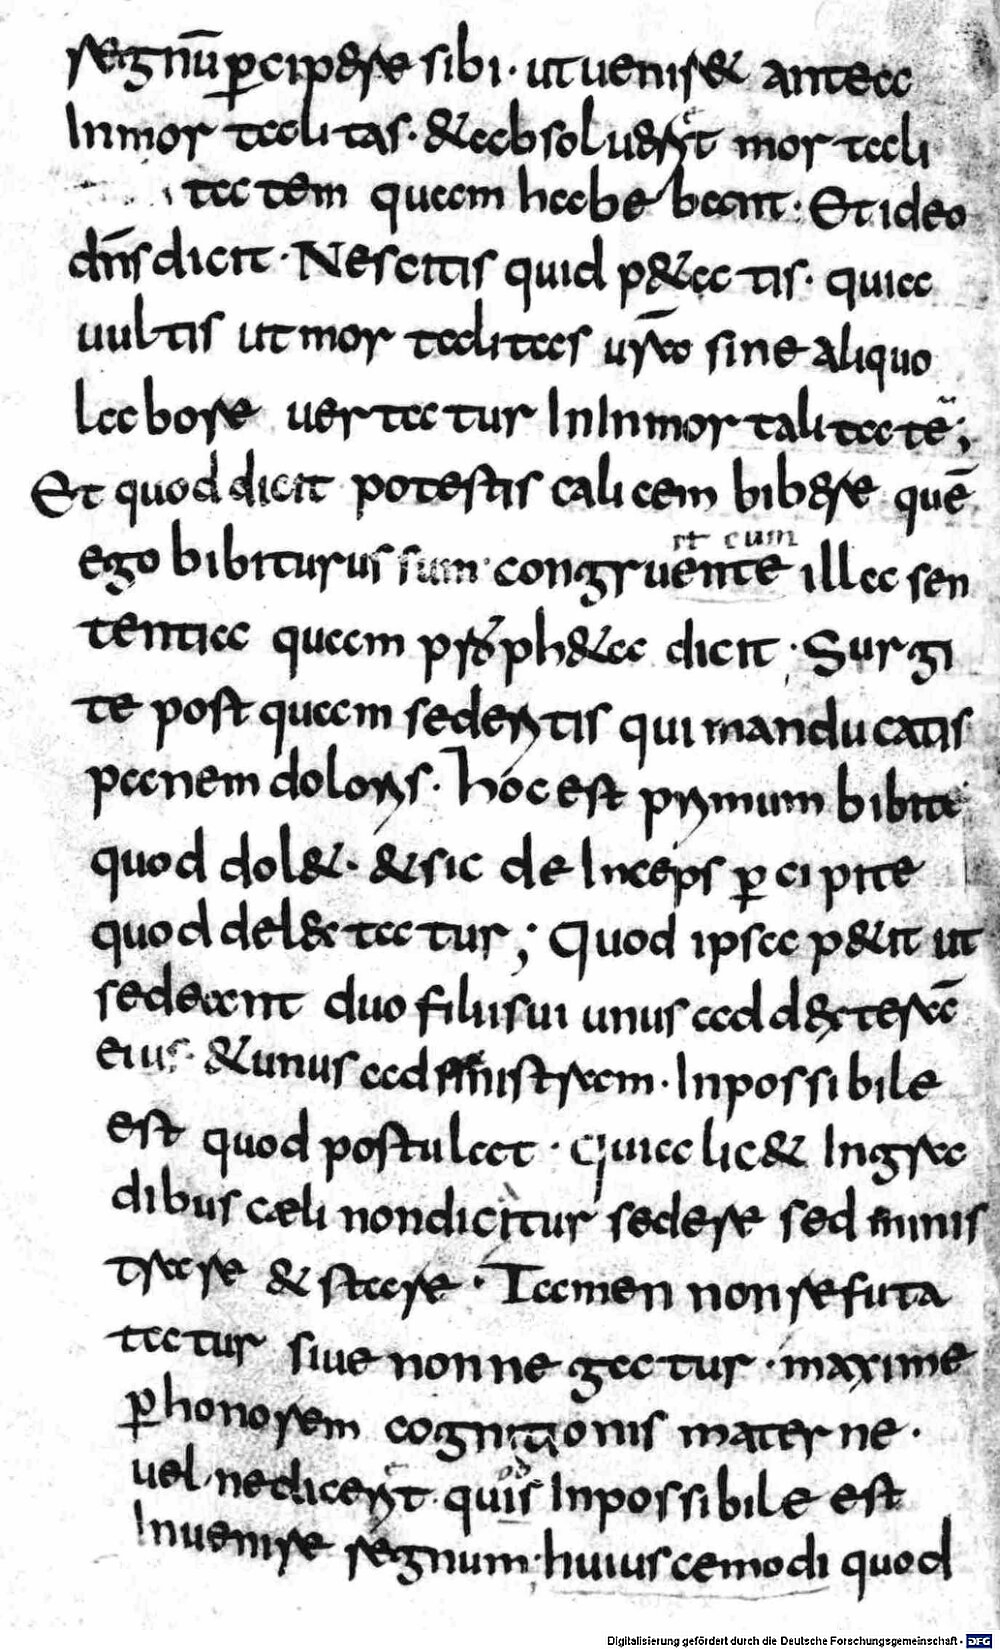 regnū ꝑcipere sibi · ut uenir& antea
Inmortalitas · & absoluer&t mortali
tatem quam habebant · Et ideo
dn̄s dicit · Nescitis quid p&atis · quia
uultis ut mortalitas ur̄a sine aliquo
labore uertatur In Inmortalitatē ;
Et quod dicit potestis calicem bibere quē
ego bibiturus sum · congruente illa sen
rt cum
tentia quam proph&a dicit · Surgi
te post quam sedentis qui manducatis
panem doloris · hoc est primum bibite
quod dol& · & sic deInceps ꝑcipite
quod del&tatur ; Quod ipsa p&it ut
sedeant duo filii sui unus ad dexterā
eius · & unus ad sinistram · Inpossibile
est quod postulat · quia lic& Ingra
dibus cæli non dicitur sedere sed minis
trare & stare · Tamen non refuta
tatur siue non negatur · maxime
ꝑ honorem cognitionis materne ·
uel ne dicer&t quis Inpossibile est
Inuenire regnum huiuscemodi quod
Digitalisierung gefördert durch die Deutsche Forschungsgemeinschaft - DFG